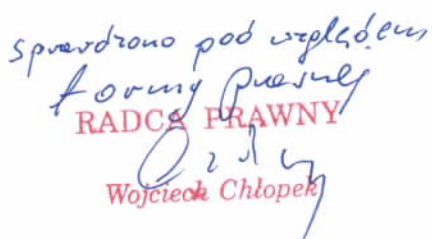 sprawdzono pod względem
formy prawnej
RADCA PRAWNY
Wojciech Chłopek